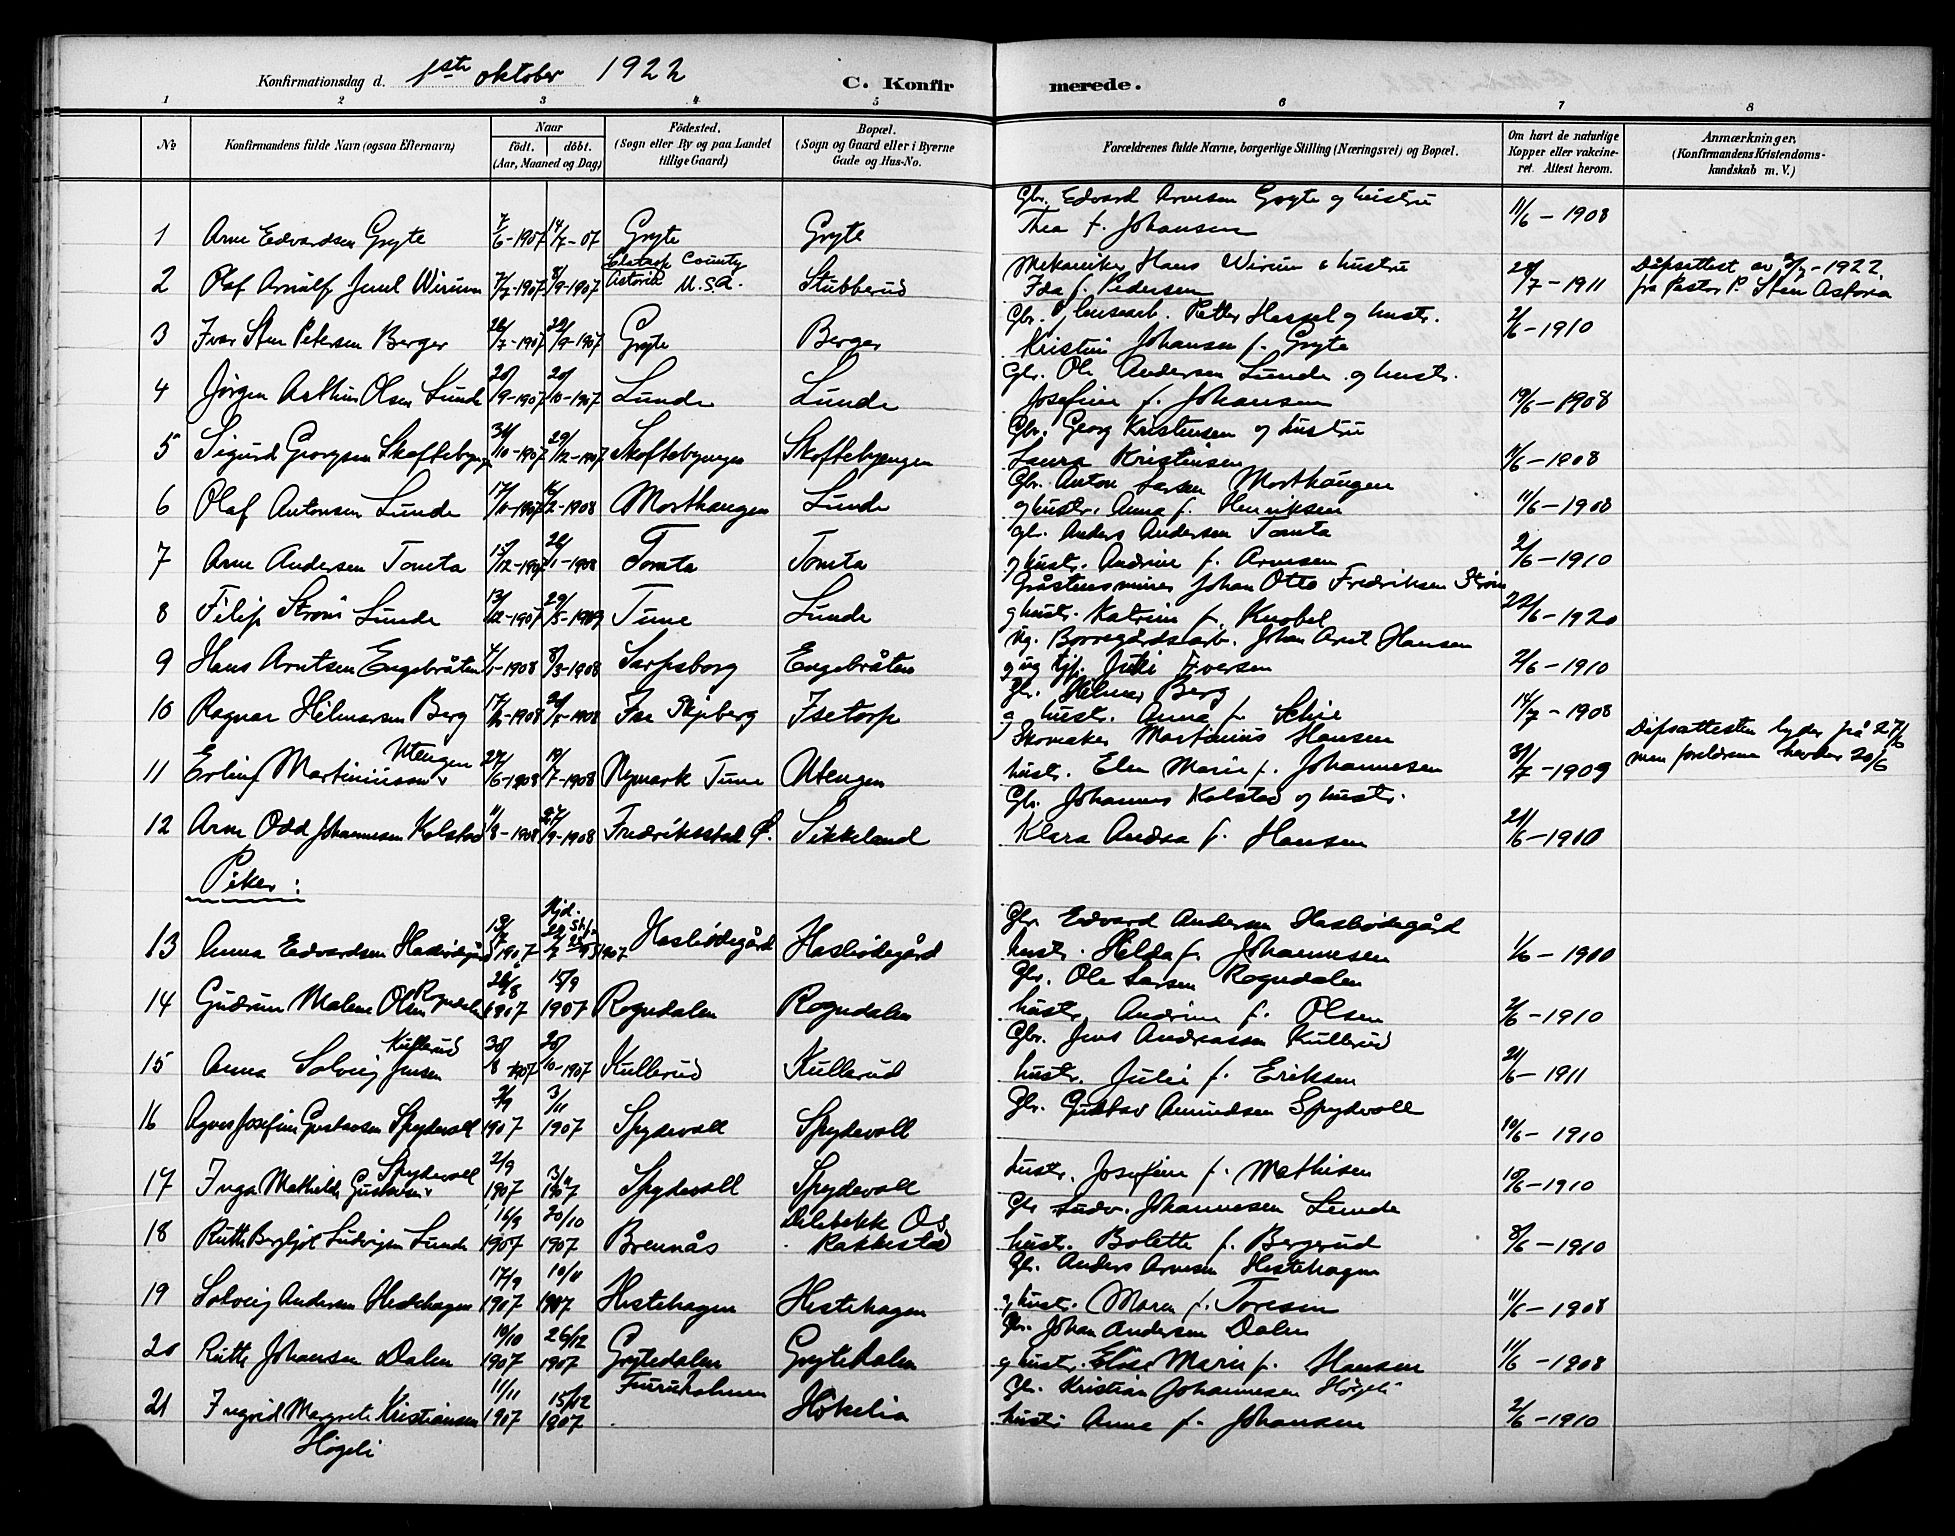 Konfirmationsdag d. 1ste oktober 1922
C. Konfir merede.
1 2 3 4 5 6 7 8
No
Konfirmandens fulde Navn (ogsaa Efternavn)
Naar
födt. döbt.
(Aar, Maaned og Dag)
Födested.
(Sogn eller By og paa Landet
tillige Gaard)
Bopæl.
(Sogn og Gaard eller i Byerne
Gade og Hus-No.
Forældrenes fulde Navne, borgerlige Stilling (Næringsvei) og Bopæl.
Om havt de naturlige
Kopper eller vakcine-
ret. Attest herom.
Anmærkninger,
(Konfirmandens Kristendoms-
kundskab m. V.)
Gbr. Edvard Arnesen Gryte og hustru
1 Arne Edvardsen Gryte 7/6-1907 14/7-07 Gryte Gryte Thea f. Johansen 11/6-1908
Clatsop County
Mekaniker Hans Wirum & hustru
2 Olaf Arnulf Wirum 7/7-1907 8/9-1907 Astoria U.S.A. Stubberud Ida f. Pedersen 28/7-1911 Dåpsattest av -1922
fra Pastor P. Sten Astoria
Gbr. Petter Hessel og hustr.
3 Ivar Sten Petersen Berger 26/7-1907 22/9-1907 Gryte Berger Kristine Johansen f. Gryte 2/6-1910
Gbr. Ole Andersen Lunde og hustr.
4 Jørgen Arthur Olsen Lunde 20/9-1907 20/10-1907 Lunde Lunde Josefine f. Johansen 19/6-1908
Gbr. Georg Kristensen og hustru
5 Sigurd Georgsen Skoftebyengen 31/10-1907 29/12-1907 Skoftebyengen Skoftebyengen Laura Kristensen 11/6-1908
Gbr. Anton Larsen Morthaugen
6 Olaf Antonsen Lunde 17/11-1907 16/2-1908 Morthaugen Lunde og hustr. Anna f. Henriksen 11/6-1908
Gbr. Anders Andersen Tomta
7 Arne Andersen Tomta 15/12-1907 26/1-1908 Tomta Tomta og hustr. Andrine f. Arnesen 2/6-1910
Gråstensminer Johan Otto Fredriksen Strøm
8 Filip Strøm Lunde 13/12-1907 29/5-1909 Tune Lunde og hustr. Katrine f. Knobel 22/6-1920
Ug. Borregårdsarb. Johan Arnt Hansen
9 Hans Arntsen Engebråten 4/1-1908 8/3-1908 Sarpsborg Engebråten og ug tjp. Julie Iversen 2/6-1910
Gbr. Hilmar Berg
10 Ragnar Hilmarsen Berg 17/2-1908 Ise Skjeberg Isetorp og hustr. Anna f. Schie 14/7-1908
Utengen
Skomaker Martinius Hansen
Dåpsattesten lyder på 27/6
11 Erling Martiniussen 27/6-1908 19/7-1908 Nymark Tune Utengen hustr. Elen Marie f. Johannesen 31/7-1909 men foreldrene hevder 20/6
Gbr. Johannes Kolstad og hustr.
12 Arne Odd Johannesen Kolstad 11/8-1908 27/9-1908 Fredriksstad Ø. Sikkeland Klara Andrea f. Hansen 21/6-1910
Piker:
Hjd.
Gbr. Edvard Andersen Haslødegård
13 Anna Edvardsen Haslødegård 1907 1907 Haslødegård Haslødegård hustr. Hilda f. Johannesen 1/6-1910
Gbr. Ole Larsen Rognedalen
14 Gudrun Malene Olsen Rognedalen 26/8 1907 15/9 1907 Rognedalen Rognedalen hustr. Andrine f. Olsen 2/6-1910
Gbr. Jens Andreassen Kullerud
15 Anna Solveig Jensen Kullerud 30/8-1907 20/10-1907 Kullerud Kullerud hustr. Julie f. Eriksen 21/6-1911
Gbr. Gustav Amundsen Spydevoll
16 Agnes Josefine Gustavsen Spydevoll 2/9 1907 3/11 1907 Spydevoll Spydevoll 10/6-1910
17 Inga Mathilde Gustavsen Spydevoll 2/9 1907 3/11 1907 Spydevoll Spydevoll hustr. Josefine f. Mathisen 10/6-1910
Gbr Ludv. Johannesen Lunde
18 Ruth Bergljot Ludvigsen Lunde 16/9 1907 20/10 1907 Brennås Os Rakkestad hustr. Bolette f. Bergerud 8/6-1910
Gbr. Anders Arnesen Hestehagen
19 Solveig Andersen Hestehagen 17/9 1907 10/11 1907 Hestehagen Hestehagen og hustr. Maren f. Toresen 11/6-1908
Gbr. Johan Andersen Dalen
20 Ruth Johansen Dalen 10/10 1907 26/12 1907 Grytedalen Grytedalen og hustr. Elise Marie f. Hansen 11/6-1908
Gbr. Kristian Johannesen Høgeli
21 Ingrid Margrete Kristiansen 11/11 1907 15/12 1907 Furuholmen Hökelia hustr Anne f. Johansen 2/6-1910
Høgeli